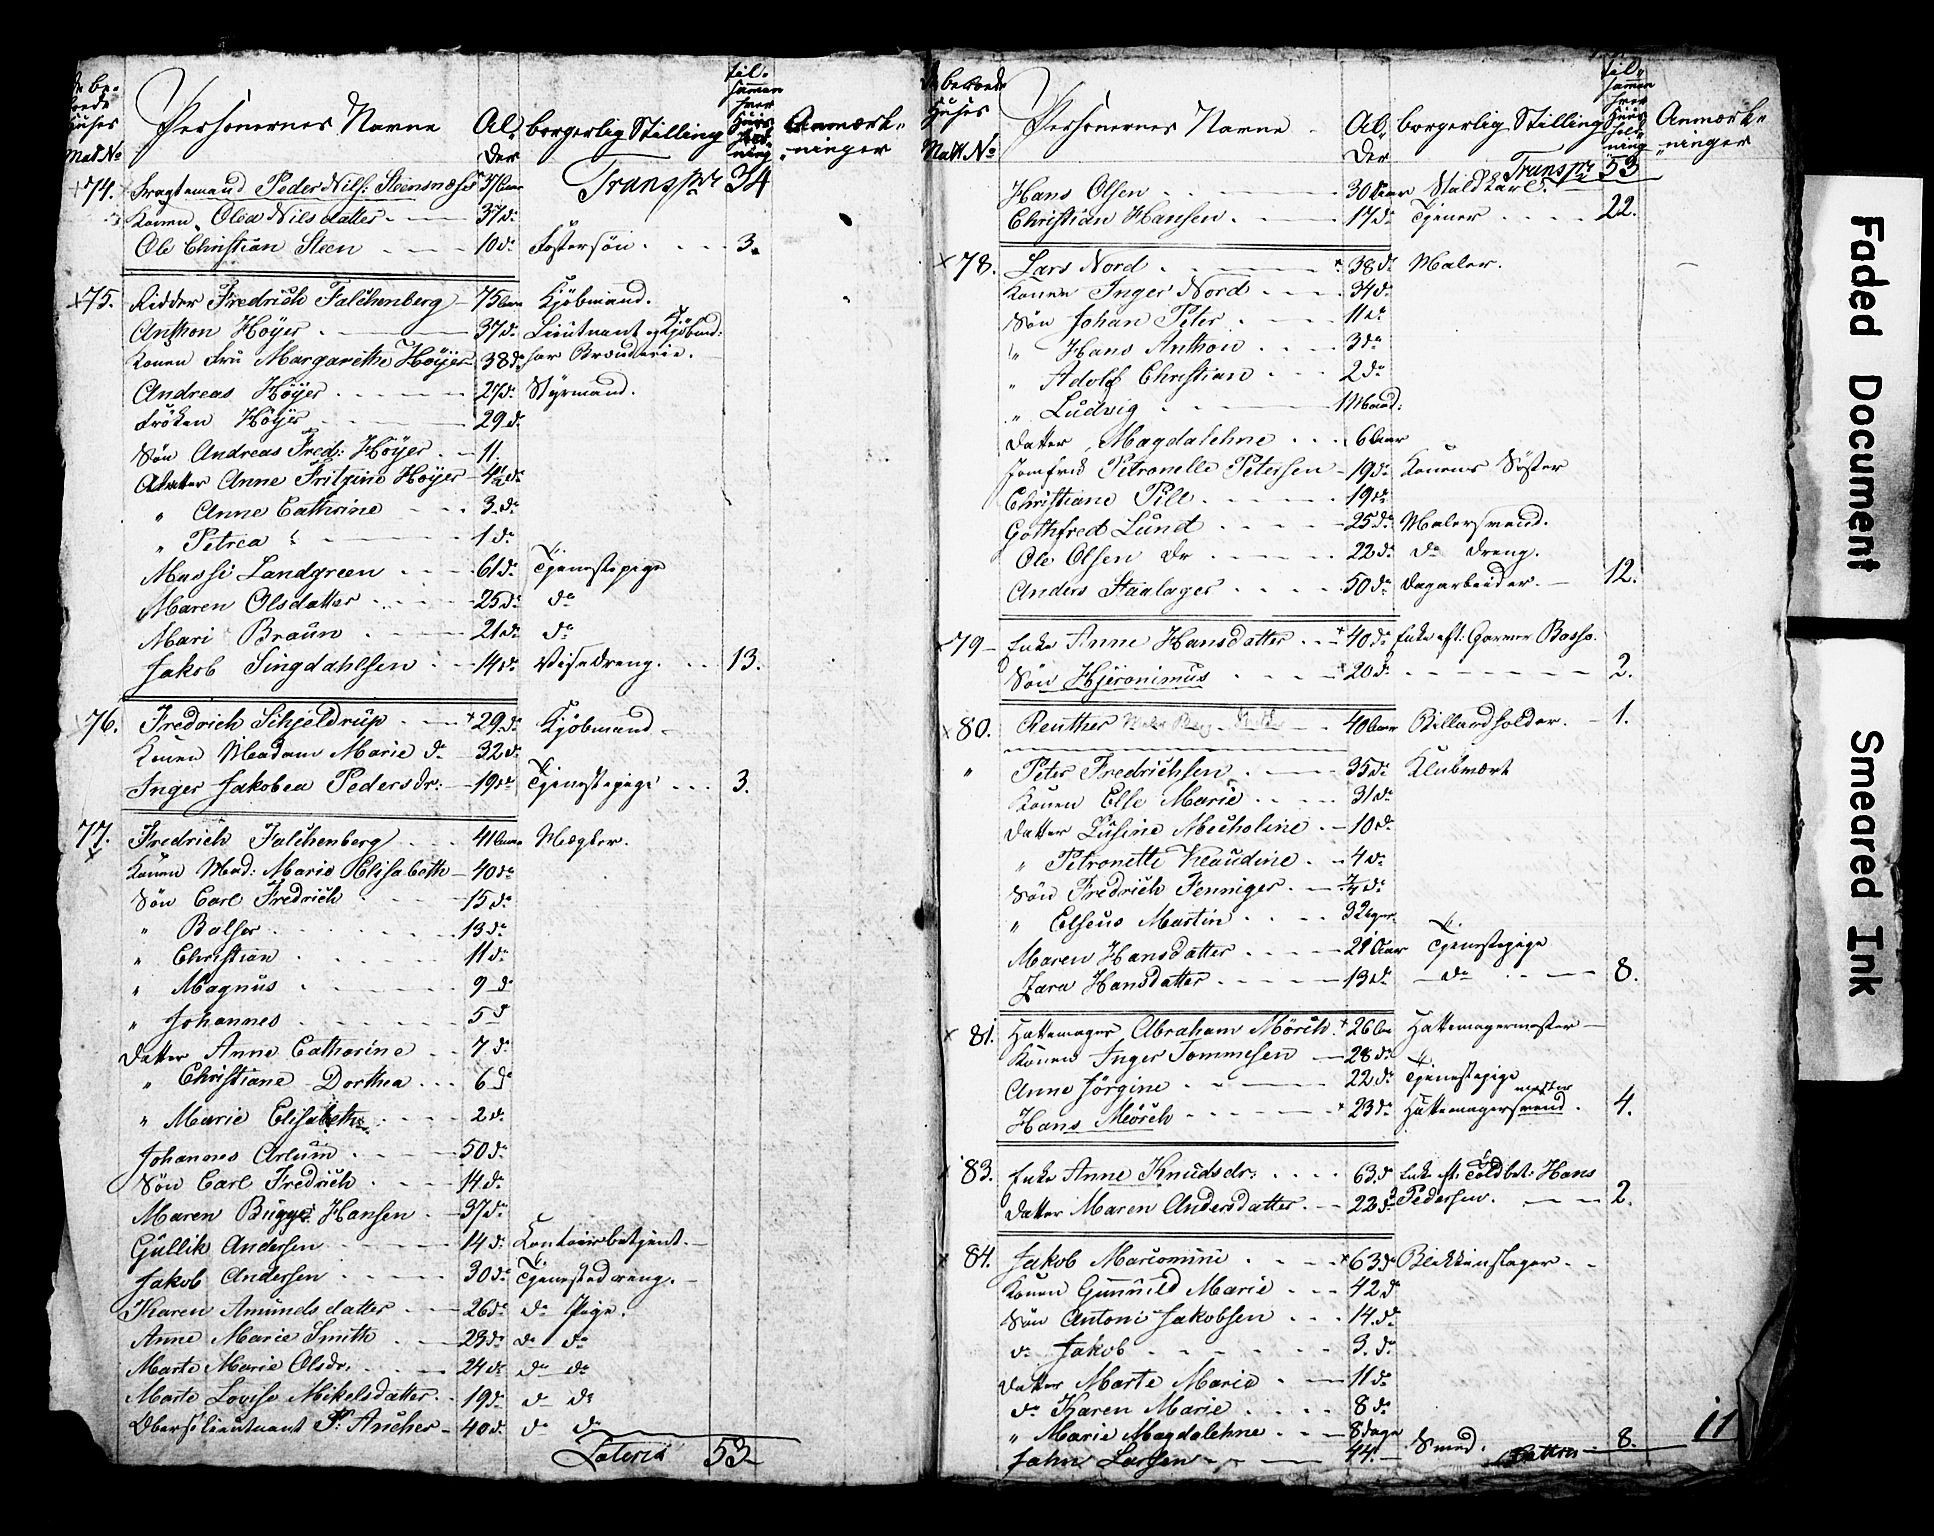 De be-
boede
Huses
Matt No
Personernes Navne
Al,
der
borgerlig Stilling
til-
samen
hver
Huus
hold-
ning
Anmærk-
ninger
Transpr 34
74. Fragtemand Peder Nils: Steensnæs 37 Aar
Konen Olea Nilsdatter 37 do
Ole Christian Steen 10 do Fostersön 3.
75. Ridder Fredrich Falchenberg 75 Aar Kjöbmand.
Anthon Höyer 37 do Lieutnant og Kjöbmd:
Konen Fru Margarethe Höyer 38 do har Brouderie.
Andreas Höyer 27 do Styrmand.
Fröken Höyer 29 do
Sön Andreas Fred: Höyer 11.
Datter Anne Fritzine Höyer 4½ do
" Anne Cathrine 3 do
" Petrea 1 do
Massi Landgreen 61 do Tjenestepige
Maren Olsdatter 25 do do
Mari Braun 21 do do
Jakob Singdahlsen 14 do Visedreng. 13.
76. Fredrich Schjeldrup 29 do Kjöbmand
Konen Madam Marie do 32 do
Inger Jakobea Pedersdr: 19 do Tjenestepige 3.
77. Fredrich Falchenberg 41 Aar Mægler.
Konen Mad: Marie Elisabeth 40 do
Sön Carl Fredrich 15 do
" Balser 13 do
" Christian 11 do
" Magnus 9 do
" Johannes 5 do
Datter Anne Catharine 7 do
" Christiane Dorthea 6 do
" Marie Elisabeth 2 do
Johannes Arlum 50 do
Sön Carl Fredrich 14 do
Maren Bugge Hansen 37 do
Gullik Andersen 14 do Kontoirbetjent.
Jakob Andersen 30 do Tjenestedreng.
Karen Amundsdatter 26 do do Pige.
Anne Marie Smith 23 do do do
Marte Marie Olsdr. 24 do do do
Marte Lovise Mikelsdatter 19 do do do
Oberstlieutnant P: Ancher 40 do do do
Lateris 53
De beboede
Huses
Matt No
Personernes Navne
Al,
der
borgerlig Stilling
til-
samen
hver
Huus
hold-
ning
Anmærk-
ninger
Transpr 53
Hans Olsen 30 Aar Staldkarl.
Christian Hansen 17 do Tjener 22.
78. Lars Nord 38 do Maler.
Konen Inger Nord 34 do
Sön Johan Peter 11 do
" Hans Anthon 3 do
" Adolf Christian 2 do
" Ludvig 1 Maad:
Datter Magdalehne 6 Aar
Jomfru Petronelle Petersen 19 do Konens Söster
Christiane Pile 19 do
Gothfred Lund 25 do Malersvend.
Ole Olsen Dr 22 do do dreng.
Anders Staalager 50 do Dagarbeider. 12.
79 Enke Anne Hansdatter 40 do Enke eft: Garver Basso.
Sön Hjeronimus 20 do 2.
80. Reuther 40 Aar Billardholder. 1.
" Peter Fredrichsen 35 do Klubvært
Konen Else Marie 31 do
Datter Lusine Mecholine 10 do
" Petronette Klaudine 4 do
Sön Fredrich Fenniger 7/4 do
" Elseus Martin 32 Uger
Maren Hansdatter 21 Aar Tjenestepige
Zara Hansdatter 13 do do 8.
81. Hattemager Abraham Mörch 26 Aar Hattemagermester
Konen Inger Tommesen 28 do
Anne Jörgine 22 do Tjenestepige
mester
Hans Mörch 23 do Hattemagersvend. 4.
83. Enke Anne Knudsdr: 63 do Enke eft: Toldbet: Hans
Datter Maren Andersdatter 22 do Pedersen. 2.
84. Jakob Marcomini 63 do Blekkenslager
Konen Gunnild Marie 42 do
Sön Antoni Jakobsen 14 do
do Jakob 3 do
Datter Marte Marie 11 do
do Karen Marie 8 do
" Marie Magdalehne 8 dage
Jahn Larsen 44. Smed. 8.
11
Faded Document
Smeared Ink